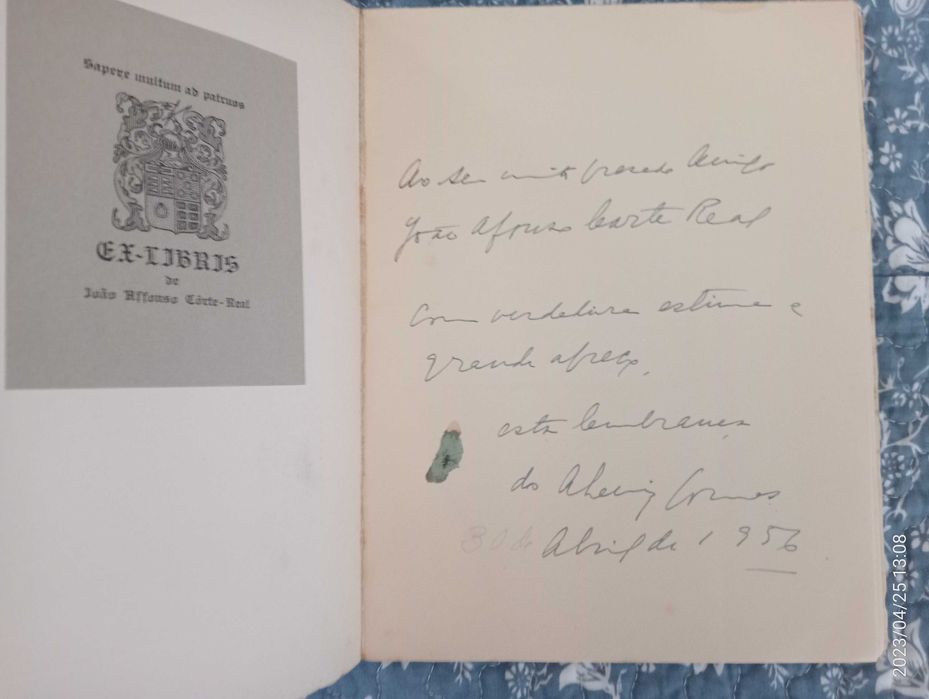 Sapere multum ad patruos
EX-LIBRIS
de
João Affonso Côrte-Real
Ao seu muito prezado Amigo
João Afonso Corte Real
com verdadeira estima e
grande apreço,
esta lembrança
do Gomes
30 de Abril de 1956
2023/04/25 13:08